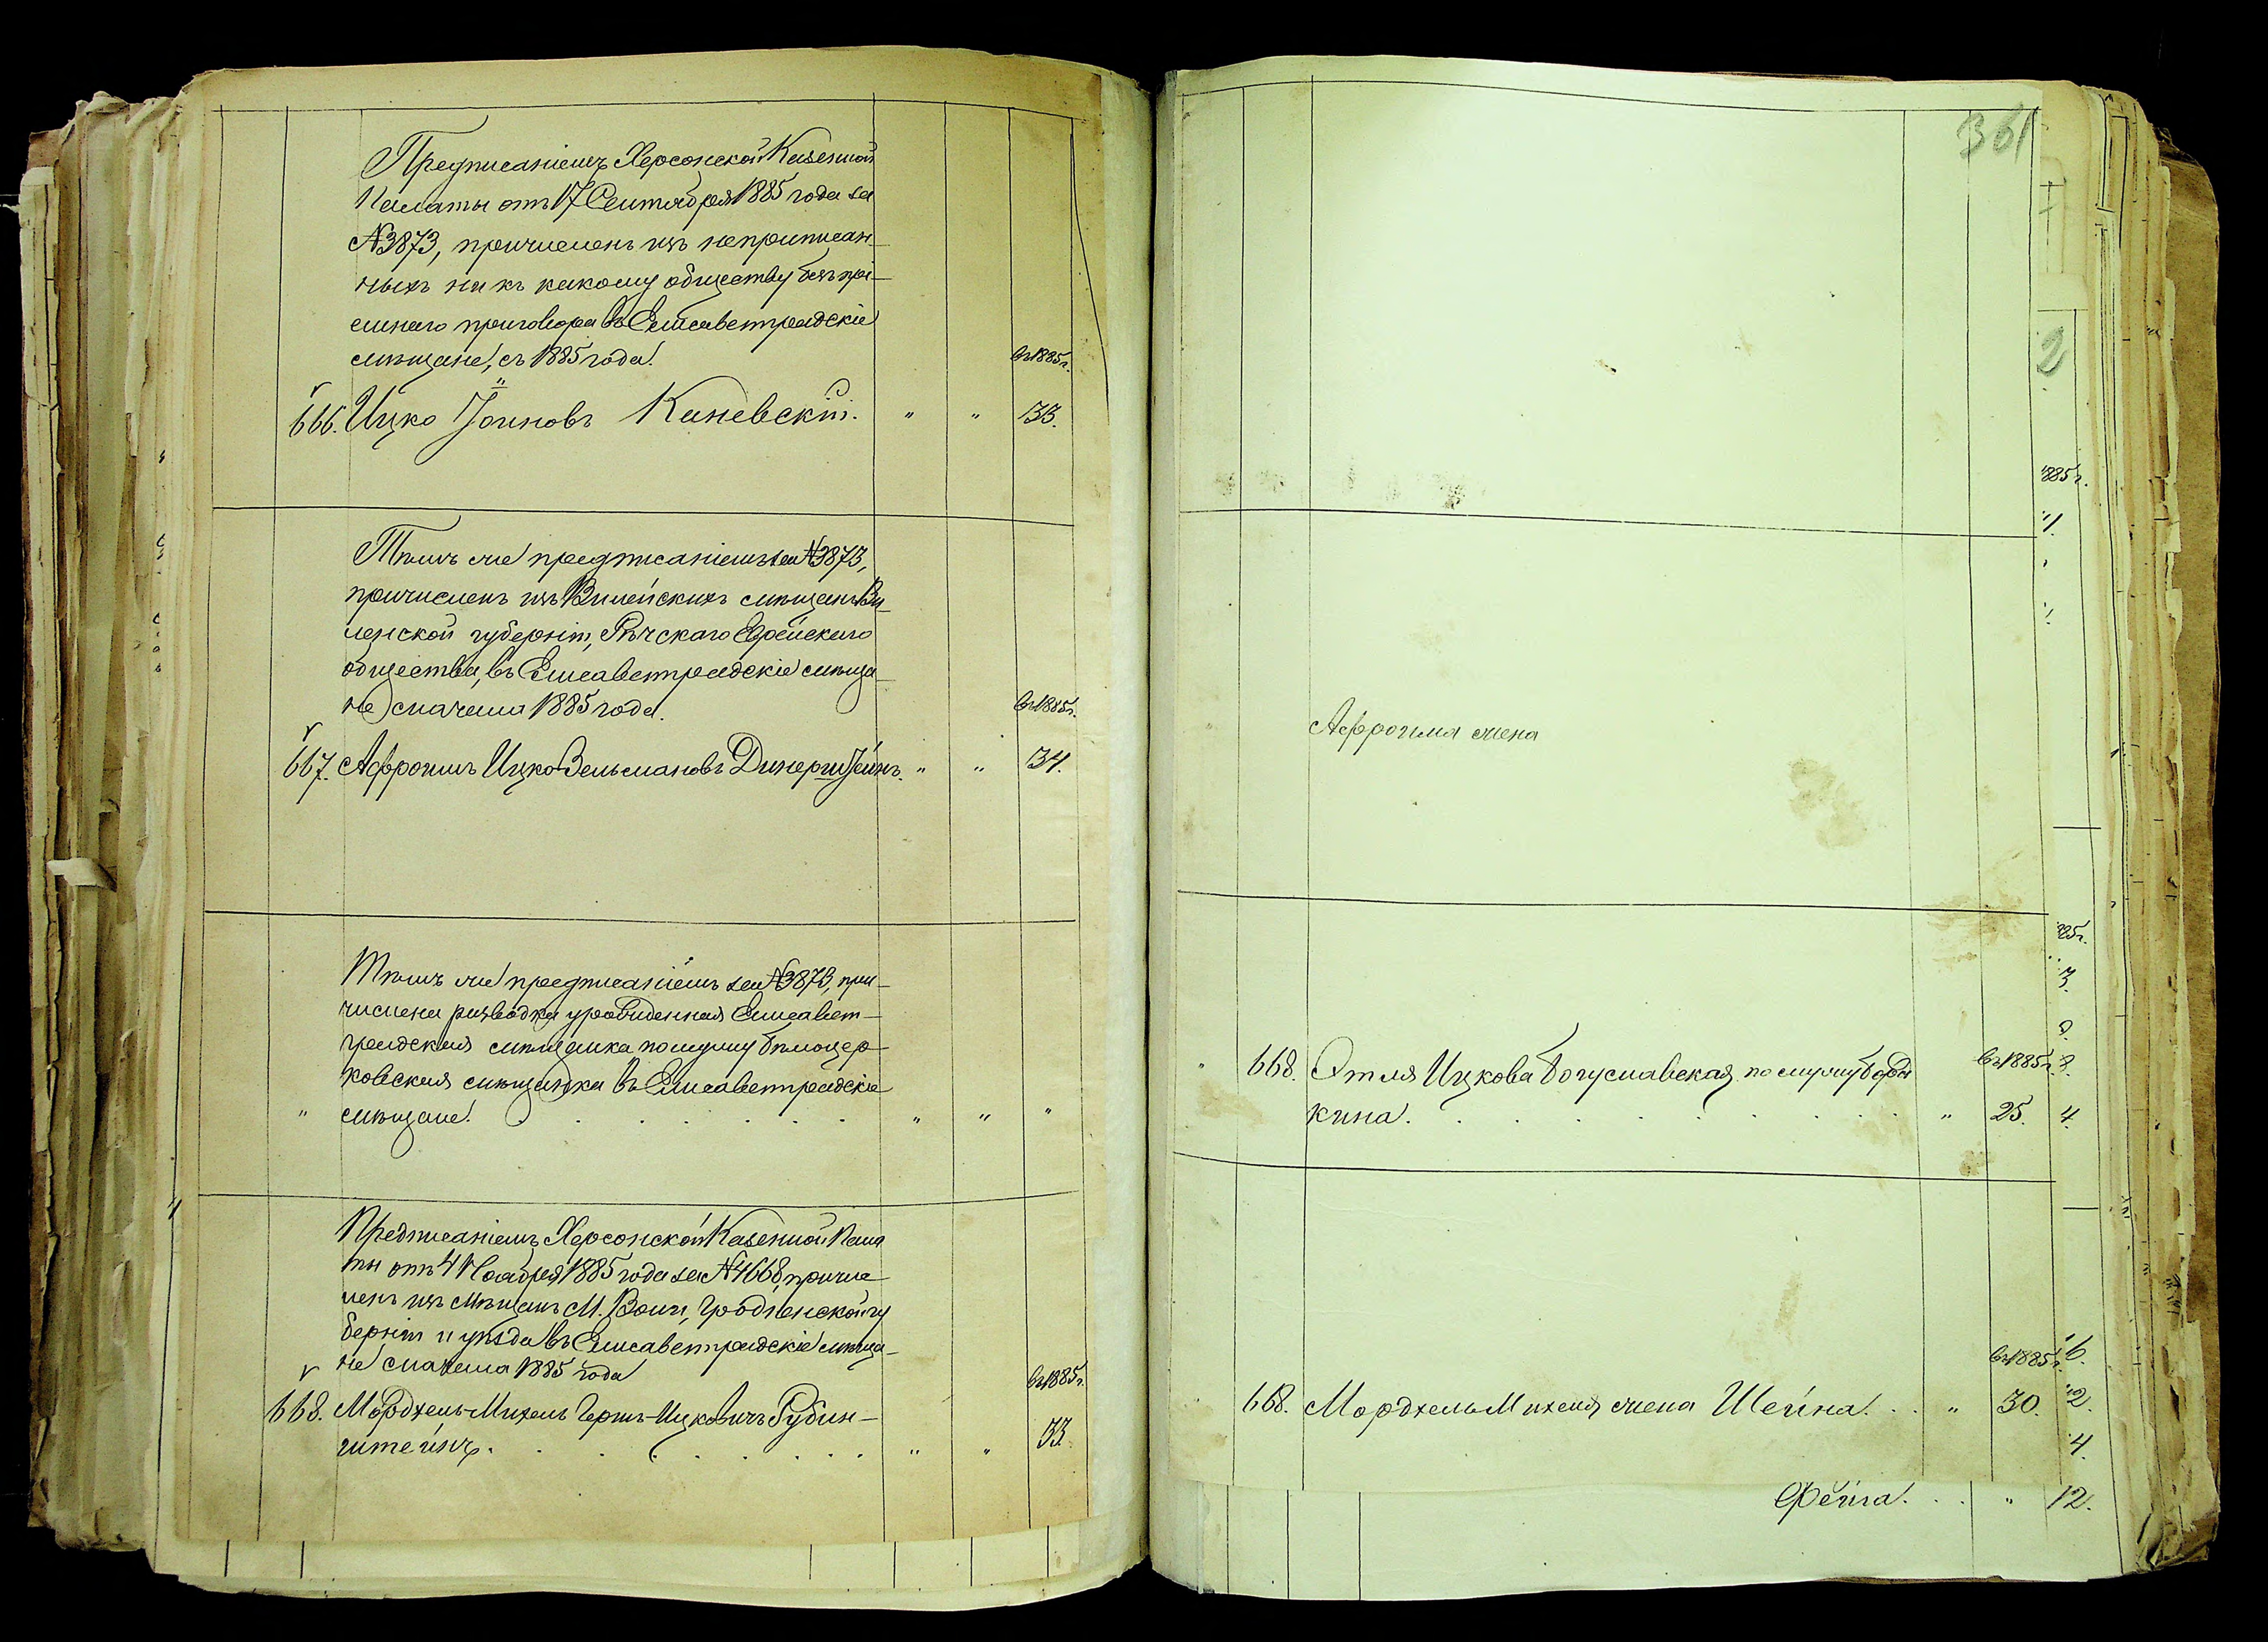 Предписаніемъ Херсонской Казенной
Палаты отъ 17 Сентября 1885 года за
№3873, причисленъ изъ неприписан-
ныхъ ни къ какому обществу безъ прі-
емнаго приговора въ Елисаветградскіе
мѣщане, съ 1885 года.
въ 1885 г.
666. Ицко Іоиновъ Каневскій. " " 33.
Тѣмъ же предписаніемъ за №3873,
причисленъ изъ Вилейскихъ мѣщанъ Ви-
ленской губерніи, Рѣчскаго Еврейскаго
общества, въ Елисаветградскіе мѣща-
не сначала 1885 года.
въ 1885 г.
667. Афроимъ Ицко Зельмановъ Динерштейнъ. " " 34.
Тѣмъ же предписаніемъ за №3873, при-
числена разводка урожденная Елисавет-
градская мѣщанка по мужу бѣлоцер-
ковская мѣщанка въ Елисаветградскіе
" мѣщане. " " "
Предписаніемъ Херсонской Казенной Пала
ты отъ 4 Ноября 1885 года за №4668, причис
ленъ изъ мѣщанъ М. Волпи, Гродненской гу
берніи и уѣзда въ Елисаветградскіе мѣща-
не сначала 1885 года
въ 1885 г.
668. Мордхель-Михель Гершъ-Ицковичъ Рубин-
штейнъ. " " 33.
361
2
1885 г.
Афроима жена
668. Этля Ицкова Богуславская по мужу Бороды
въ 1885 г.
кина. " 25. 4.
въ 1885 г. 6.
668. Мордхель Михеля жена Шейна. " 30. 2.
4.
Фейга. " 12.